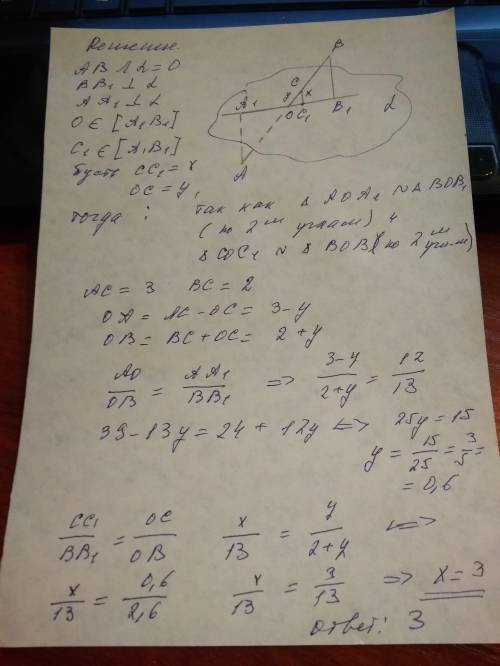 Решение.
AB ∩ α = O
BB₁ ⊥ α
AA₁ ⊥ α
O ∈ [A₁B₁]
C₁ ∈ [A₁B₁]
Пусть CC₁ = x
OC = y,
B
C
y
x
A₁
O C₁
B₁
α
A
тогда : так как Δ AOA₁ ~ Δ BOB₁
(по 2м углам) и
Δ COC₁ ~ Δ BOB₁ (по 2м углам)
AC = 3 BC = 2
OA = AC - OC = 3 - y
OB = BC + OC = 2 + y
AO/OB = AA₁/BB₁ => (3-y)/(2+y) = 12/13
39 - 13y = 24 + 12y <=> 25y = 15
y = 15/25 = 3/5 =
= 0,6
CC₁/BB₁ = OC/OB x/13 = y/(2+y) <=>
x/13 = 0,6/2,6 x/13 = 3/13 => x = 3
Ответ: 3